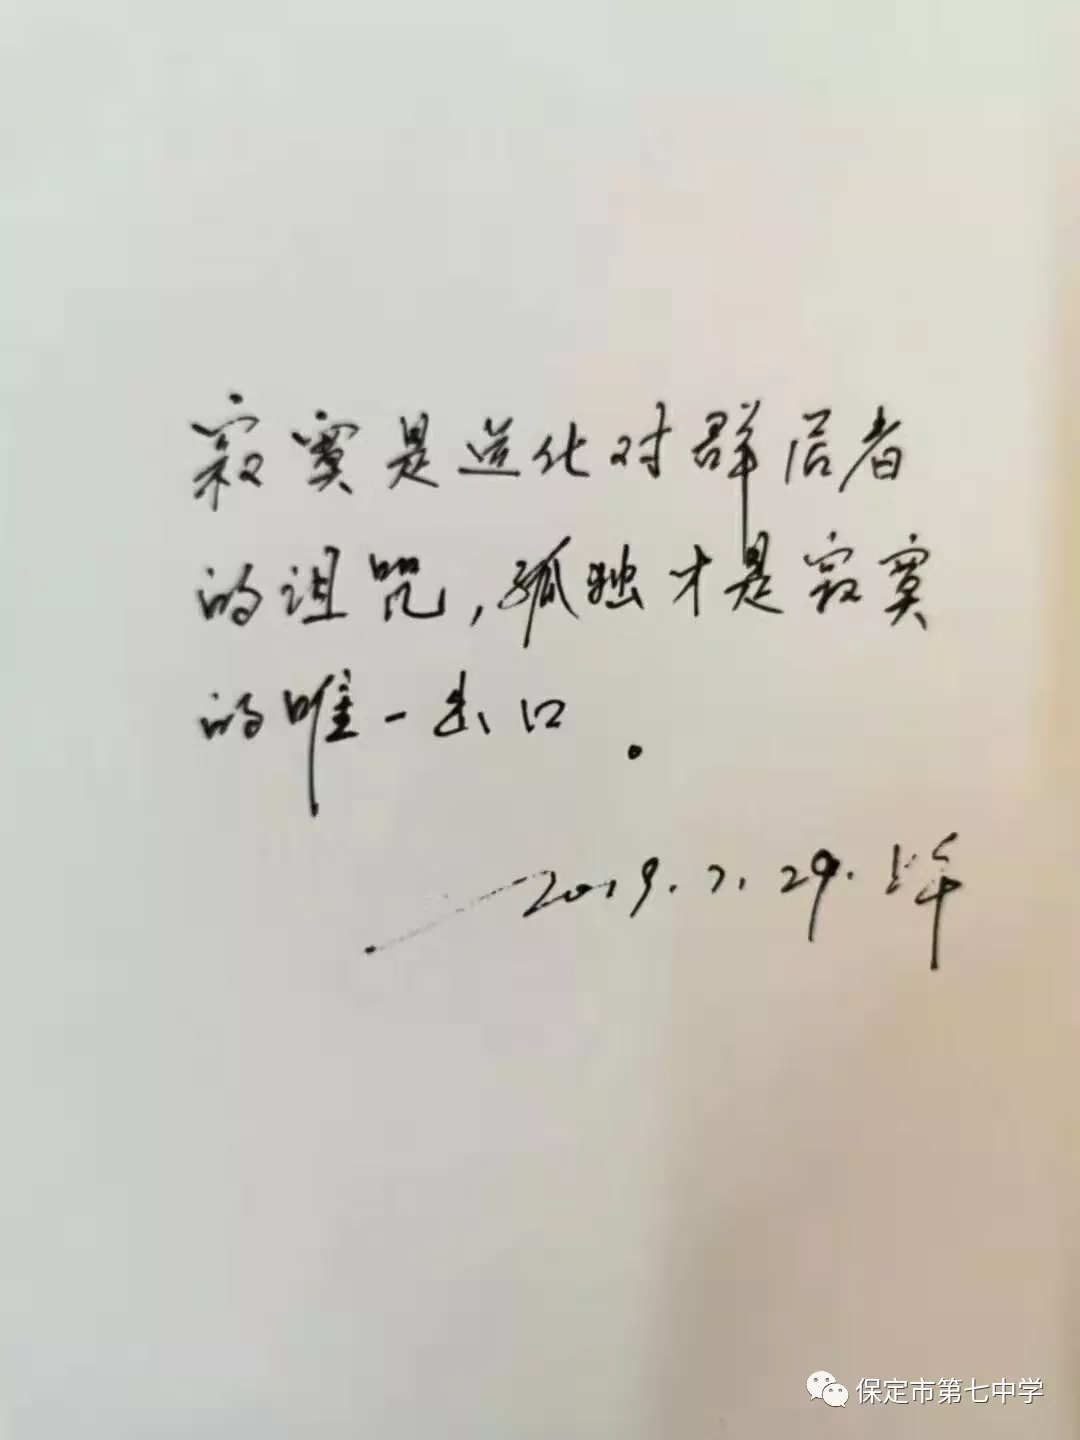 寂寞是造化对群居者
的诅咒,孤独才是寂寞
的唯一出口.
—2019.7.29.上午
保定市第七中学